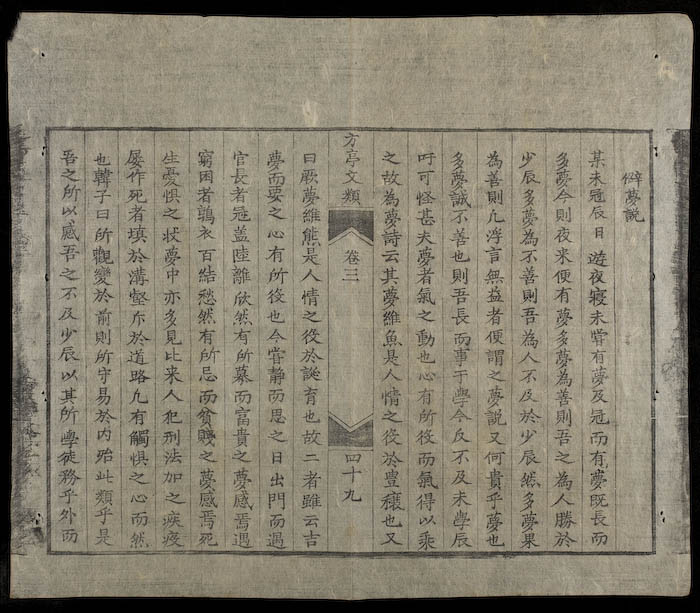 辟夢說
某未冠辰日遊夜寝未甞有夢及冠而有夢既長而
多夢今則夜来便有夢多夢為善則吾之為人勝於
少辰多夢為不善則吾為人不及於少辰然多夢果
為善則凢浮言無益者便謂之夢說又何貴乎夢也
多夢誠不善也則吾長而事于學今反不及未學辰
吁可怪甚夫夢者氣之動也心有所役而氣得以乘
之故為夢詩云其夢維魚是人情之役於豊穰也又
方亭文類 卷三 四十九
曰厥夢維熊是人情之役於誕育也故二者雖云吉
夢而要之心有所役也今甞静而思之日出門而遇
官長者冠盖陸離欣然有所慕而富貴之夢感焉遇
窮困者鶉衣百結愁然有所忌而貧賤之夢感焉死
生憂惧之状夢中亦多見比来人犯刑法加之疾疫
屡作死者填於溝壑斥於道路凢有觸惧之心而然
也韓子曰所觀變於前則所守易於内殆此類乎是
吾之所以感吾之不及少辰以其所學徒務乎外而